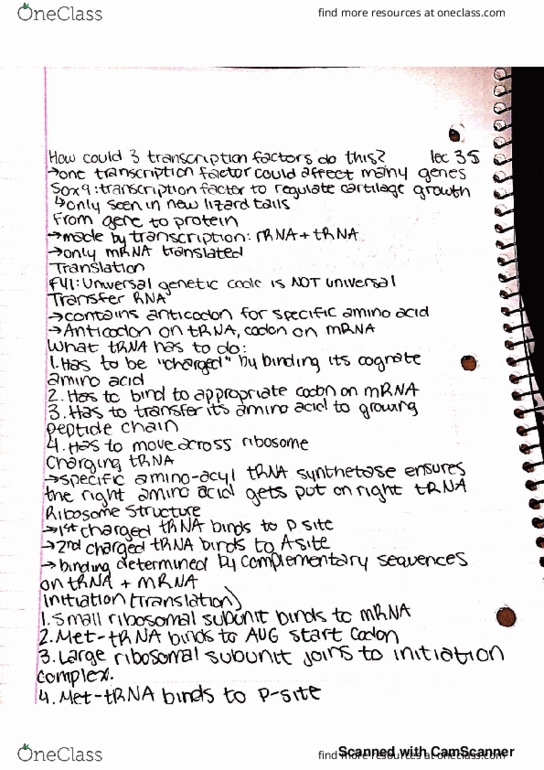 OneClass
find more resources at oneclass.com
How could 3 transcription factors do this? lec 35
→one transcription factor could affect many genes
Sox9:transcription factor to regulate cartilage growth
↳only seen in new lizard tails
From gene to protein
→made by transcription: rRNA+tRNA
→only mRNA translated
Translation
FYI:Universal genetic code is NOT universal
Transfer RNA
→contains anticodon for specific amino acid
→Anticodon on tRNA, codon on mRNA
What tRNA has to do:
1.Has to be "charged" by binding its cognate
amino acid
2.Has to bind to appropriate codon on mRNA
3.Has to transfer its amino acid to growing
peptide chain
4.Has to move across ribosome
Charging tRNA
→specific amino-acyl tRNA synthetase ensures
the right amino acid gets put on right tRNA
Ribosome Structure
→1st charged tRNA binds to P site
→2nd charged tRNA binds to A site
→binding determined by complementary sequences
on tRNA + mRNA
Initiation(Translation)
1.Small ribosomal subunit binds to mRNA
2.Met-tRNA binds to AUG start codon
3.Large ribosomal subunit joins to initiation
complex.
4.Met-tRNA binds to P-site
Scanned with CamScanner
OneClass
find more resources at oneclass.com